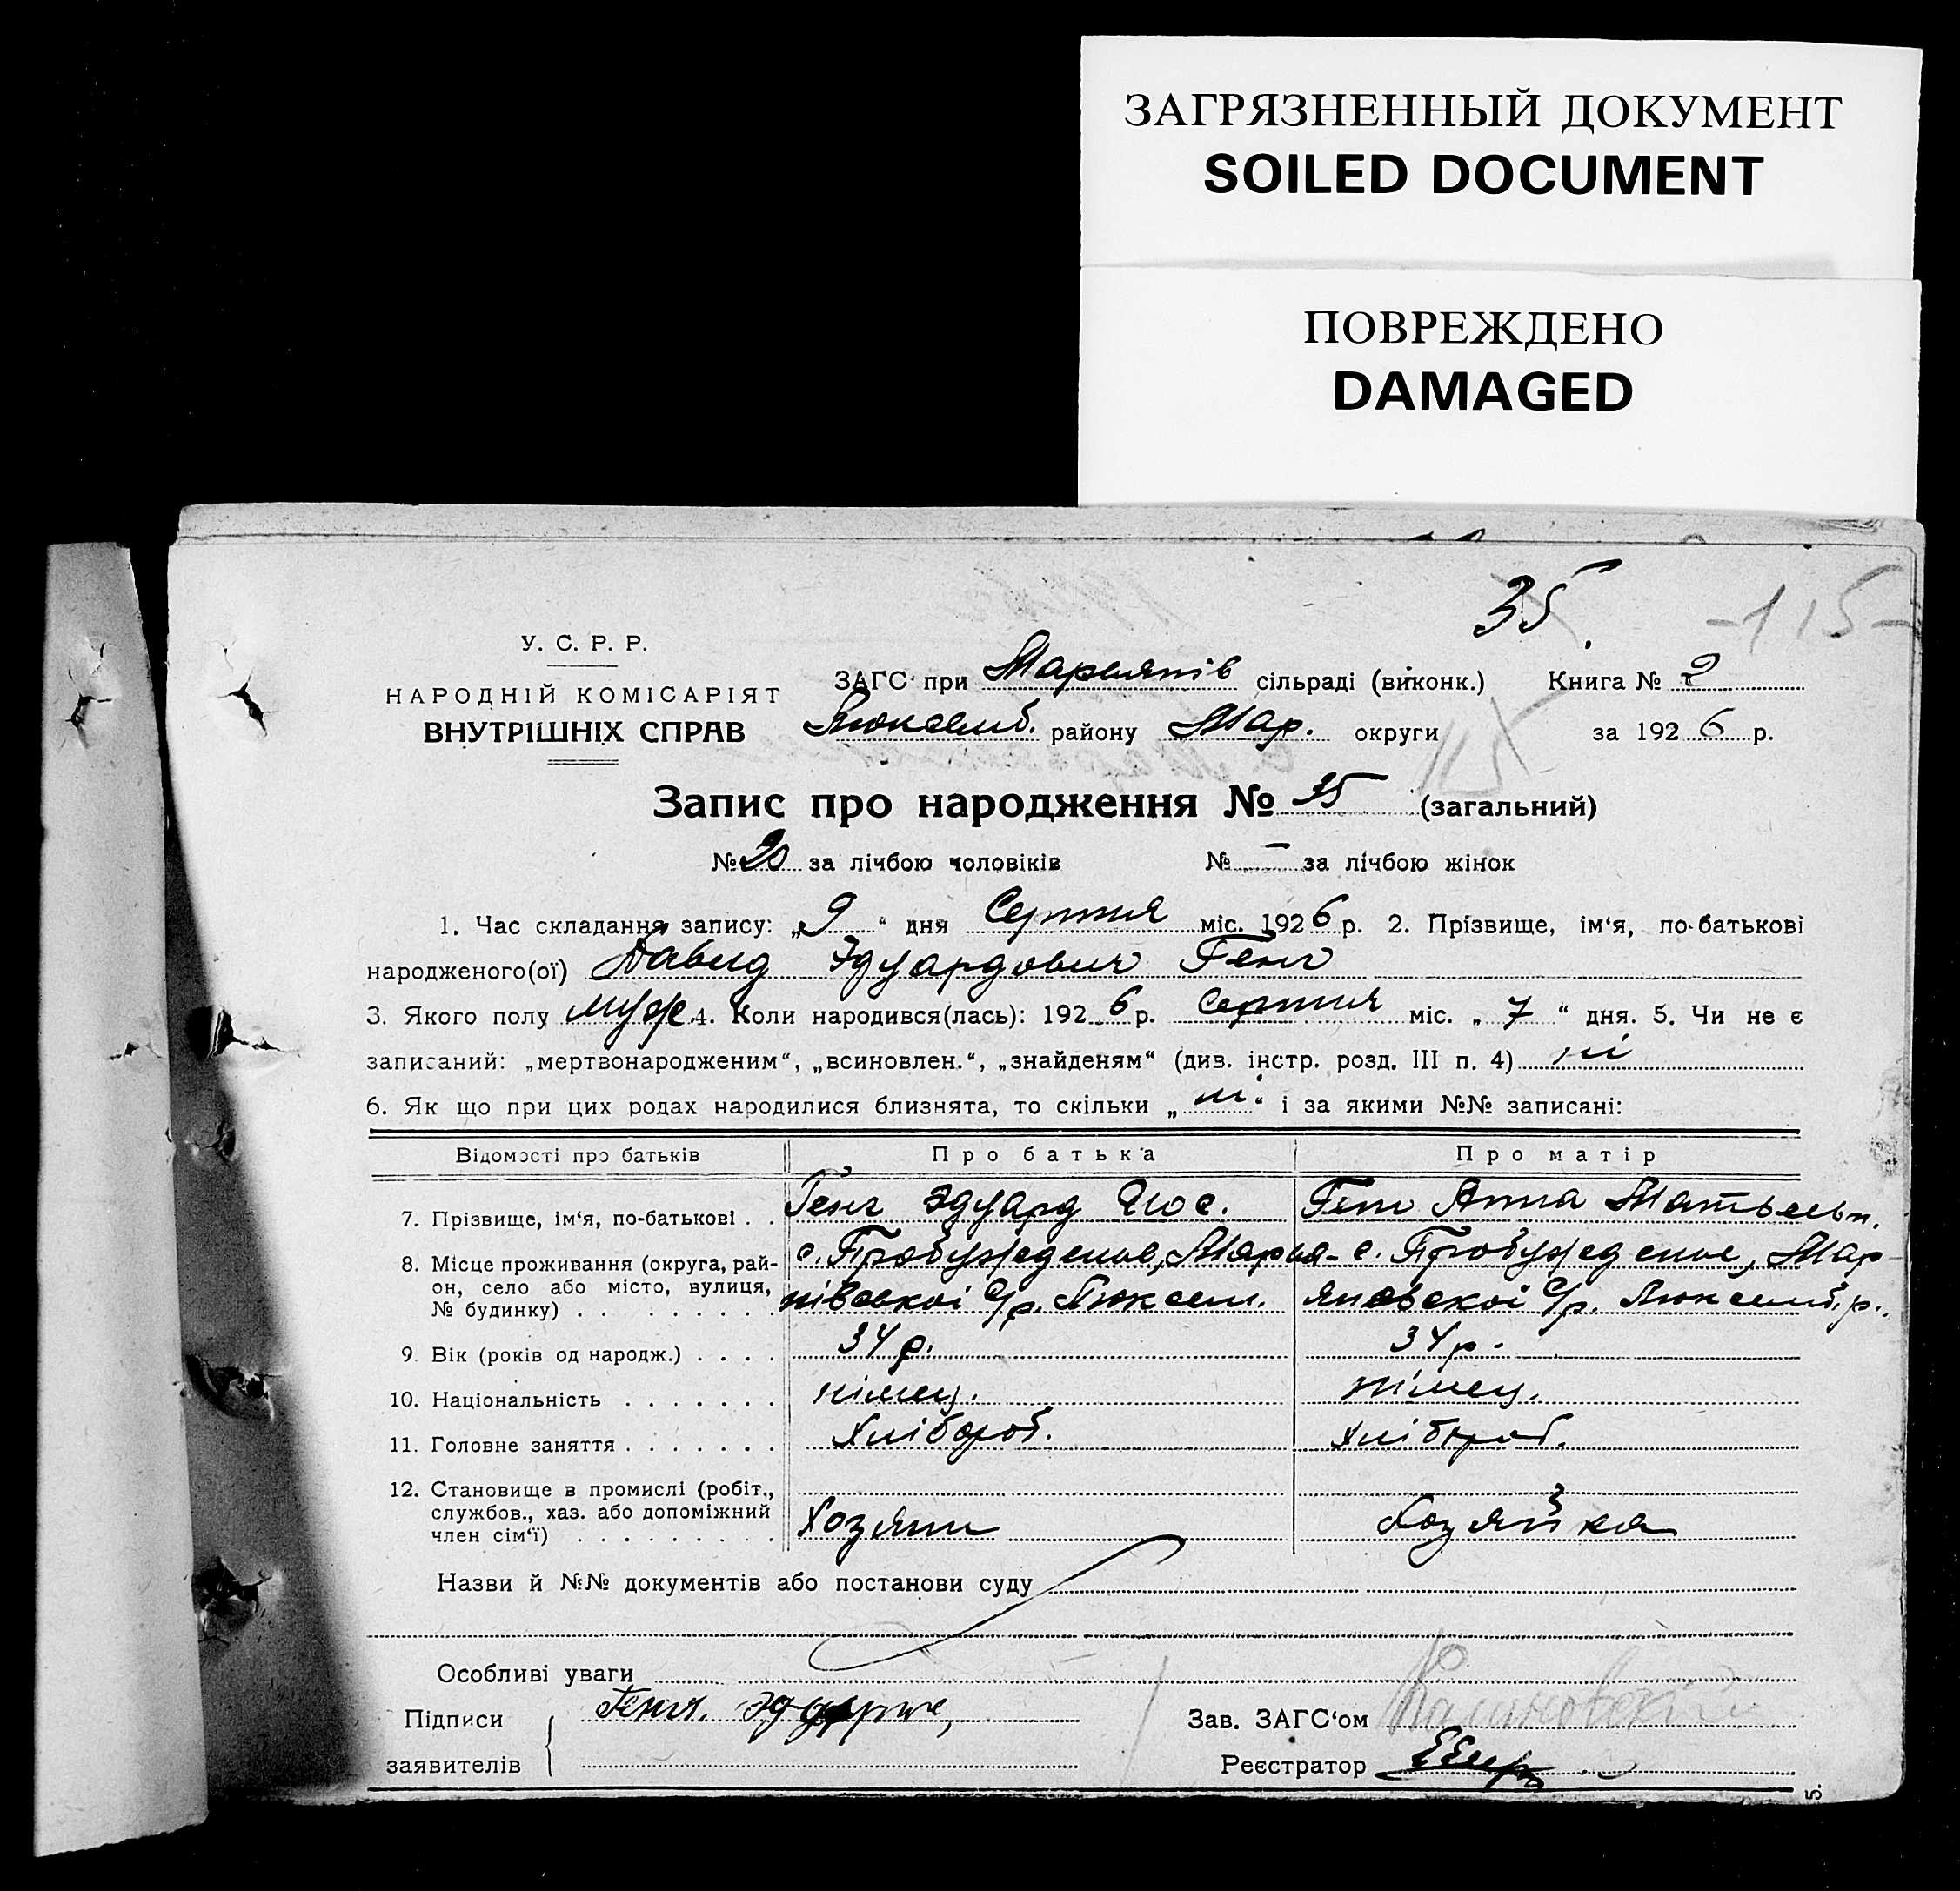 ЗАГРЯЗНЕННЫЙ ДОКУМЕНТ
SOILED DOCUMENT
ПОВРЕЖДЕНО
DAMAGED
35.
-115-
У. С. Р. Р.
НАРОДНІЙ КОМІСАРІЯТ
ВНУТРІШНІХ СПРАВ
ЗАГС при Мар'янів сільраді (виконк.) Книга № 2
Люксемб. району Мар. округи за 1926 р.
115
Запис про народження № 35 (загальний)
№ 20 за лічбою чоловіків № – за лічбою жінок
1. Час складання запису: „9“ дня Серпня міс. 1926 р. 2. Прізвище, ім‘я, по-батькові
народженого(ої) Давид Эдуардович Генг
3. Якого полу муж 4. Коли народився(лась): 1926 р. Серпня міс. „7“ дня. 5. Чи не є
записаний: „мертвонародженим“, „всиновлен.“, „знайденям“ (див. інстр. розд. III п. 4) ні
6. Як що при цих родах народилися близнята, то скільки „ні“ і за якими №№ записані:
Відомості про батьків Про батька Про матір
7. Прізвище, ім‘я, по-батькові . . Генг Эдуард Иос. Генг Анна Матвеевн.
8. Місце проживання (округа, район, село або місто, вулиця, № будинку) с. Пробуждение, Марья- с. Пробуждение, Мар-
нівської с/р. Люксем. яновскої с/р. Люксемб. р.
9. Вік (років од народж.) . . . . 34 р. 34 р.
10. Національність . . . . . . . німец. німец.
11. Головне заняття . . . . . . . Хлібороб. Хлібороб.
12. Становище в промислі (робіт., службов., хаз. або допоміжний член сім‘ї) . . . . . . . . . Хозяин Хозяйка
Назви й №№ документів або постанови суду
Особливі уваги
Підписи Генг. Зав. ЗАГС‘ом
заявителів Реєстратор
5.